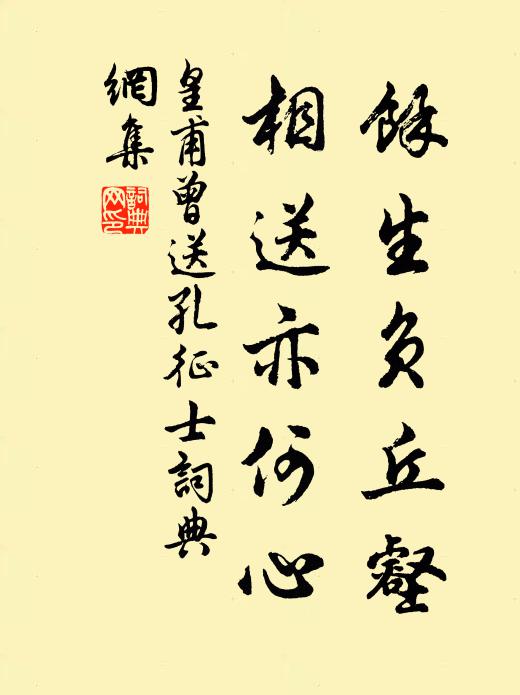 餘生負丘壑
相送亦何心
皇甫曾送孔征士詞典
網集
詞典網印